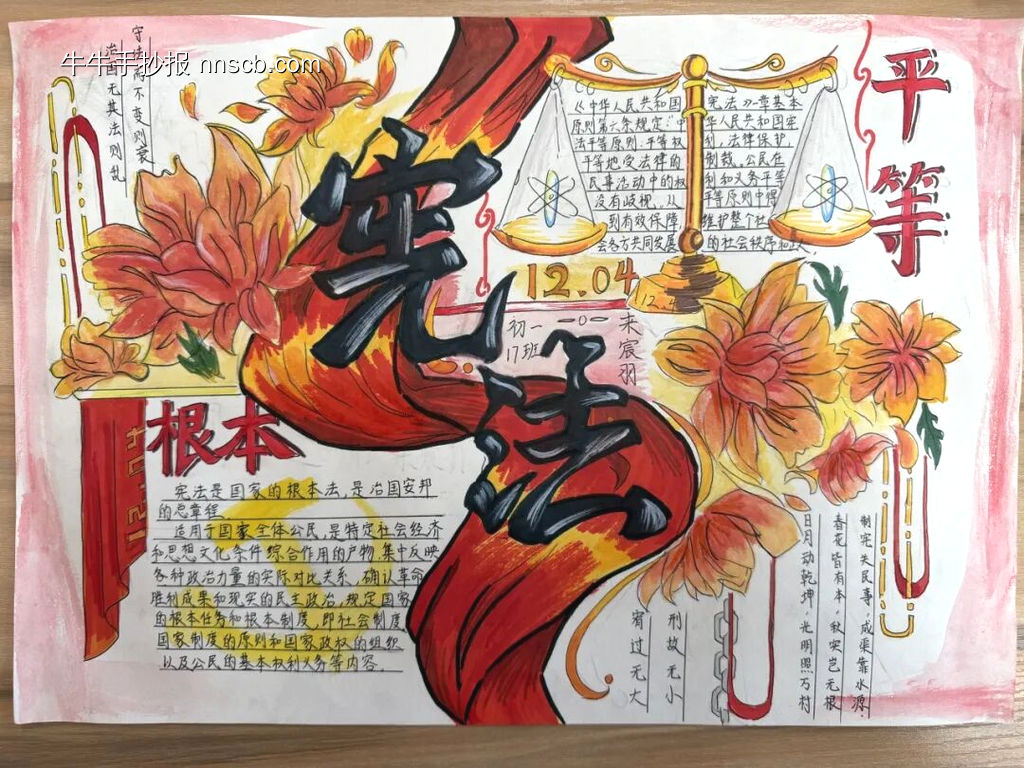 牛牛手抄报 nnscb.com
守法而不变则衰
治国无其法则乱
宪法
平等
《中华人民共和国宪法》一章基本
原则第六条规定:中华人民共和国宪
法平等原则,平等权利,法律保护,
平等地受法律的制裁。公民在
民事活动中的权利和义务平等
没有歧视。从平等原则中得
到有效保障维护整个社
会各方共同发展的社会秩序和
12.04
12.4
初一
17班
来宸羽
根本
宪法是国家的根本法,是治国安邦
的总章程
适用于国家全体公民,是特定社会经济
和思想文化条件综合作用的产物,集中反映
各种政治力量的实际对比关系,确认革命
胜利成果和现实的民主政治,规定国家
的根本任务和根本制度,即社会制度、
国家制度的原则和国家政权的组织
以及公民的基本权利义务等内容。
制宪失民事,成渠靠水源。
春花皆有本,秋实岂无根
日月动乾坤,光明照万村
刑故无小
宥过无大